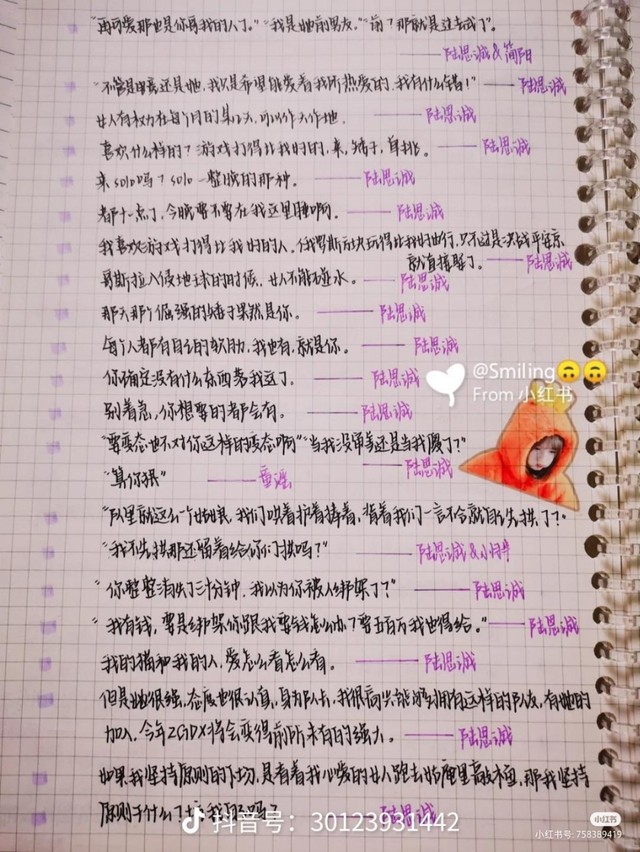 "再可爱那也是你哥我的人了。""我是她前男友。""前?那就是过去式了"。
——陆思诚&简阳
"不管是电竞还是她,我只是希望能爱着我所热爱的,我有什么错!"——陆思诚
女人有权力在每个月的某几天,可以作天作地。——陆思诚
喜欢什么样的?游戏打得比我好的,来,矮子,单挑。——陆思诚
来solo吗?solo一整晚的那种。——陆思诚
都十一点了,今晚要不要在我这里睡啊。——陆思诚
我喜欢游戏打得比我好的人,俄罗斯方块玩得比我好也行,只不过是决战平安京
就直接娶了。——陆思诚
哥斯拉入侵地球的时候,女人不能碰水。——陆思诚
那天那个倔强的矮子果然是你。——陆思诚
每个人都有自己的软肋,我也有,就是你。——陆思诚
你确定没有什么东西丢我这了。——陆思诚
别着急,你想要的都会有。——陆思诚
"要变态也不对你这样的变态啊""当我没审美还是当我傻了?"
——陆思诚
"算你狠"——童谣
"队里就这么一个女娃,我们哄着护着捧着,背着我们一言不合就自己先拱了?"
"我不先拱那还留着给你们拱吗?"——陆思诚&小胖
"你整整消失了三十分钟,我以为你被人绑架了?"——陆思诚
"我有钱,要是绑架你跟我要钱怎么办?要五百万我也得给。"——陆思诚
我的猫和我的人,爱怎么看怎么看。——陆思诚
但是她很强,态度也很认真,身为队长,我很高兴能够拥有这样的队友,有她的
加入,今年ZGDX将会变得前所未有的强大。——陆思诚
如果我坚持原则的下场,是看着我心爱的女人跑去
那我坚持
原则干什么?
陆思诚
@Smiling🙃🙃
From 小红书
抖音号:30123931442
小红书
小红书号:758389419